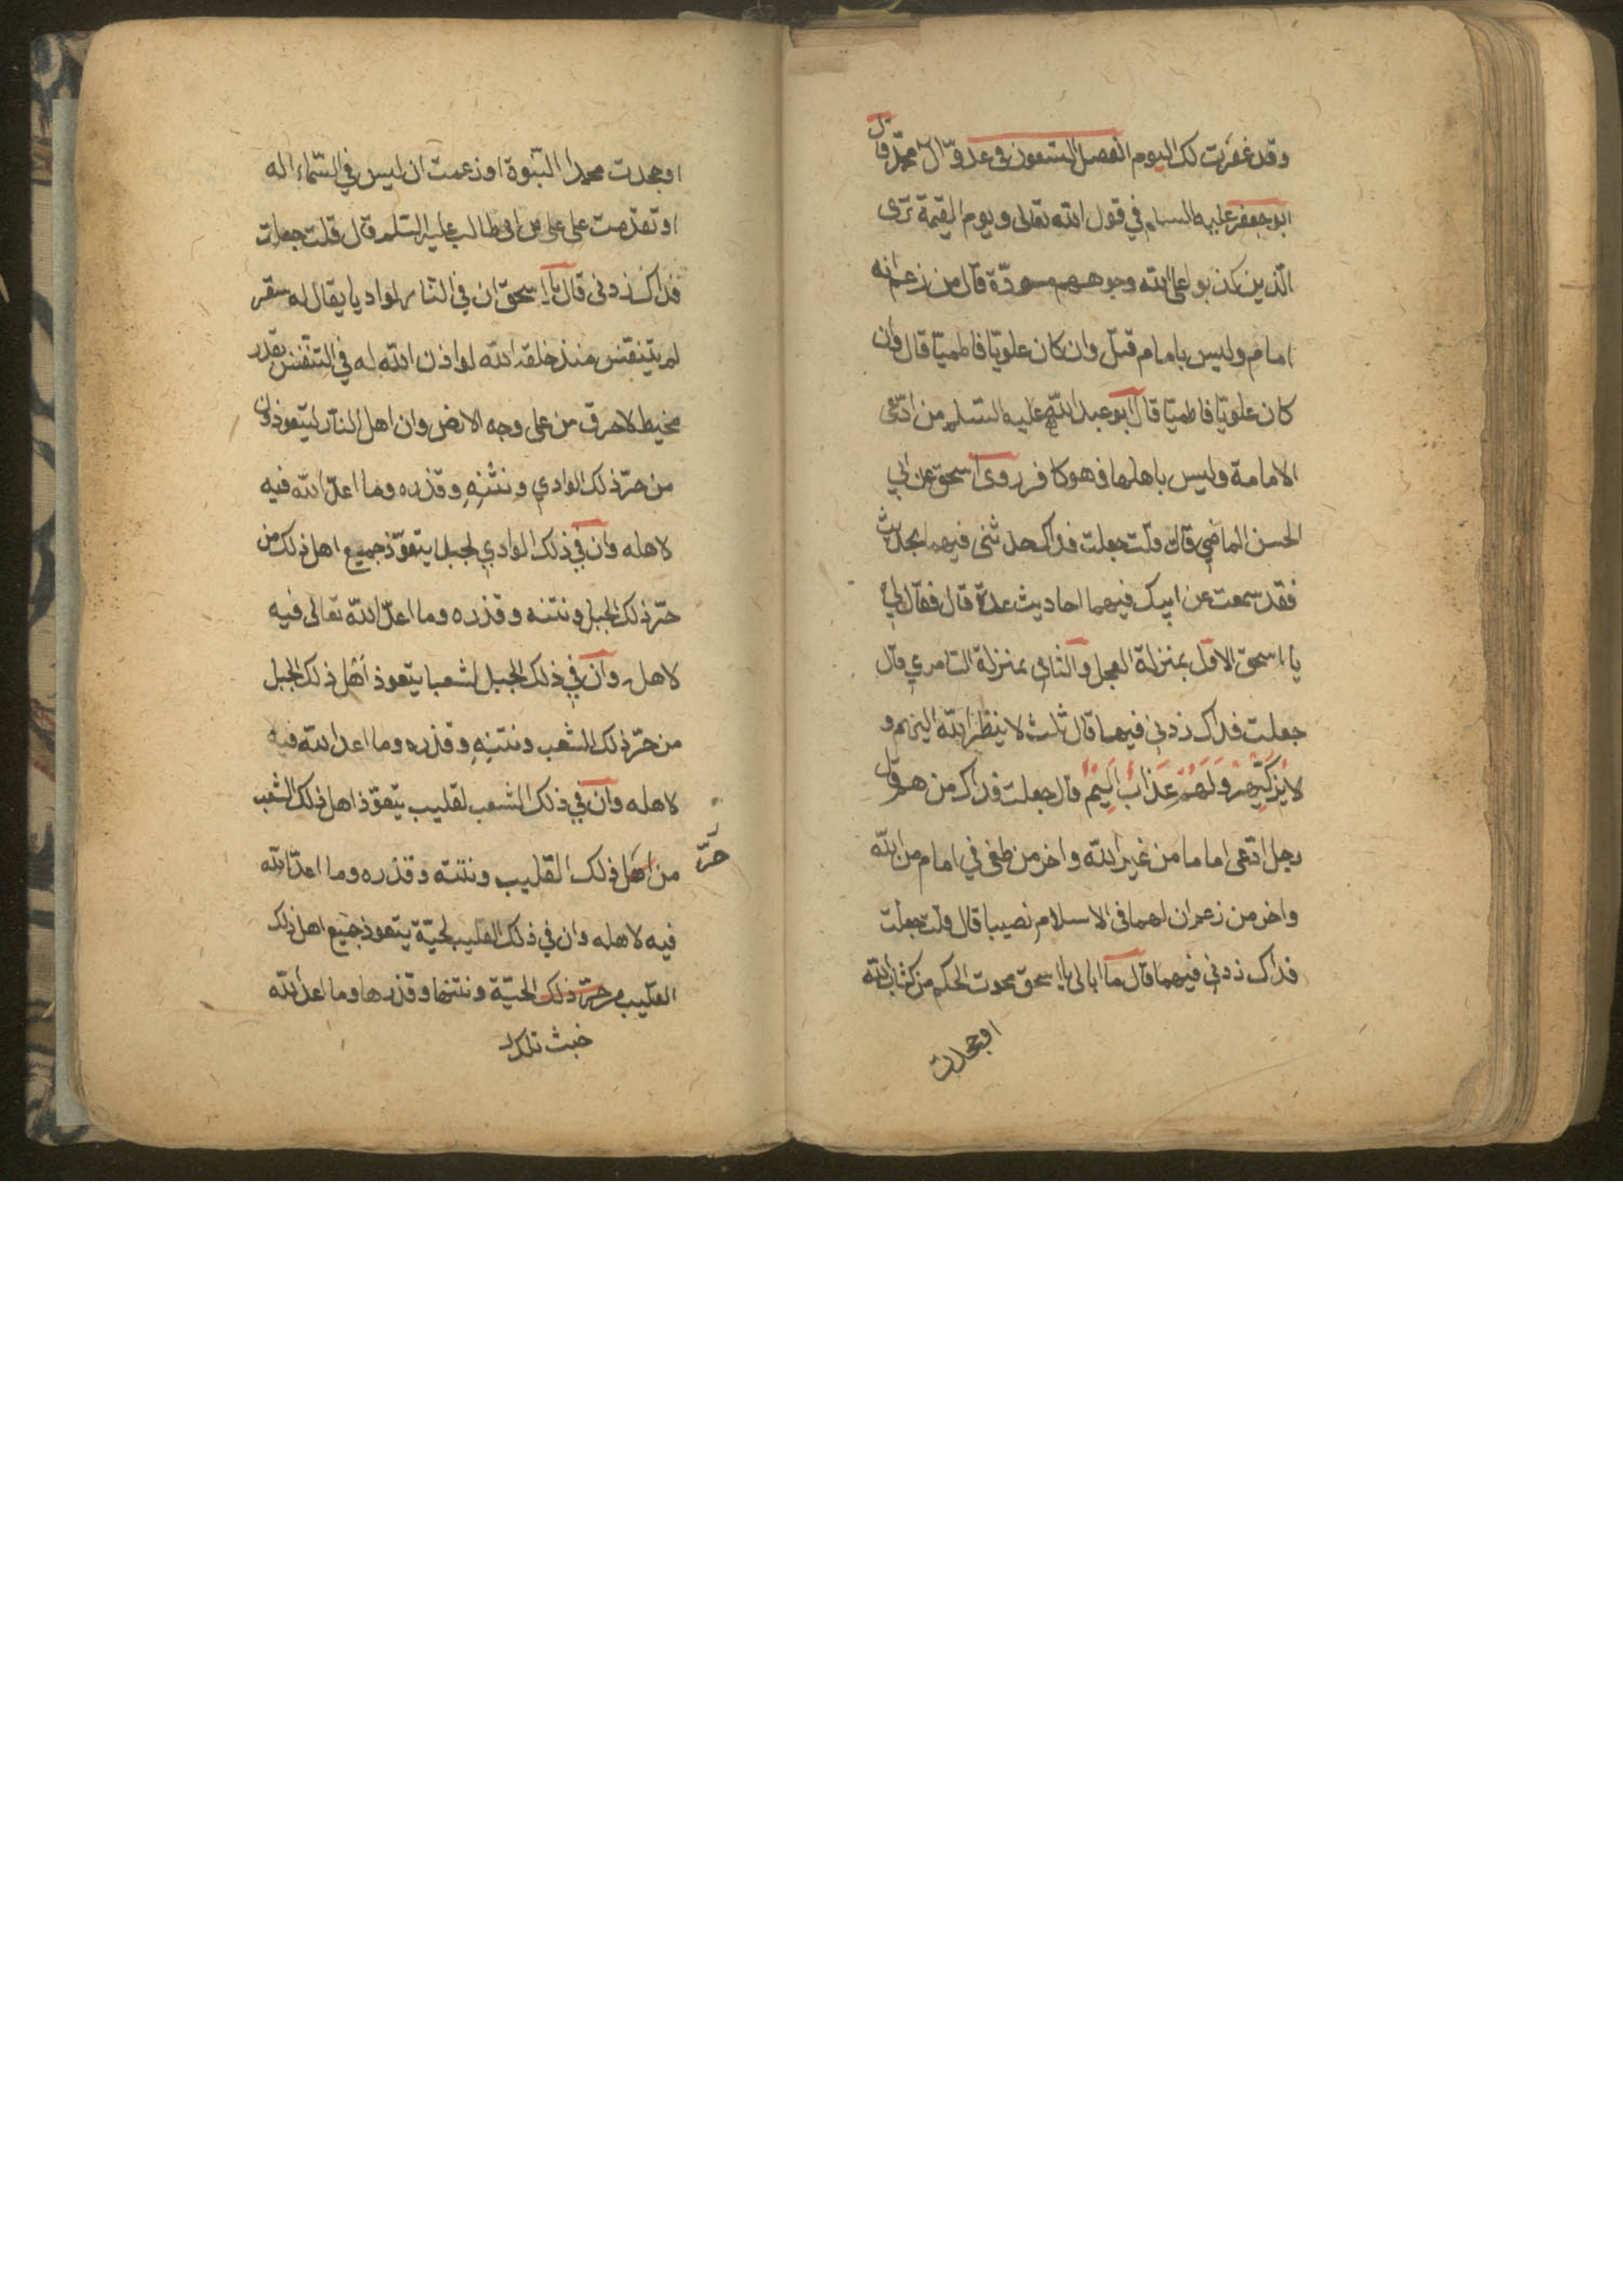 وقد غفرت لك اليوم الفصل التسعون فى عدوّ ال محمّد قال
ابو جعفر عليه السلام في قول الله تعالى ويوم القيمة ترى
الّذين كذبوا على الله وجوههم مسودّة قال من زعم انه
امام وليس بامام قيل وان كان علويّا فاطميّا قال وان
كان علويّا فاطميّا قال ابو عبد الله عليه السّلم من ادّعى
الامامة وليس باهلها فهو كافر روى اسحق عن ابي
الحسن الماضي قال قلت جعلت فداك حدثنى فيهما بحديث
فقد سمعت عن ابيك فيهما احاديث عدة قال فقال لي
يا اسحق الاول بمنزلة العجل والثانى بمنزلة السّامري قال
جعلت فداك زدني فيهما قال ثلث لا ينظر الله اليهم و
لا يُزَكّيهِمْ وَلَهُمْ عَذَابٌ اَليمٌ قال جعلت فداك من هم قال
رجل ادّعى اماما من غير الله واخر من طغى في امام من الله
واخر من زعم ان لهما فى الاسلام نصيبا قال قلت جعلت
فداك زدني فيهما قال ما ابالى يا اسحق محوت الحكم من كتاب الله
او جحدت
او جحدت محمدا النّبوة او زعمت ان ليس في السّماء اله
او تقدّمت على على بن ابى طالب عليه السّلم قال قلت جعلت
فداك زدنى قال يا اسحق ان في النّار لواديا يقال له سقر
لم يتنفّس منذ خلقه الله لو اذن الله له في التنّفس بقدر
مخيط لاحرق من على وجه الارض وان اهل النّار ليتعوذون
من حرّ ذلك الوادي ونَتْنِهِ وقذره وما اعدّ الله فيه
لاهله وان في ذلك الوادي لجبل يتعوّذ جميع اهل ذلك من
حرّ ذلك الجبل ونتنه وقذره وما اعدّ الله تعالى فيه
لاهله وان في ذلك الجبل لشعبا يتعوذ اهل ذلك الجبل
من حرّ ذلك الشعب ونتنِهِ وقذره وما اعد الله فيه
لاهله وان في ذلك الشعب لقليب يتعوّذ اهل ذلك الشعب
من اهل ذلك القليب ونتنه وقذره وما اعدّ الله
حَرّ
فيه لاهله وان في ذلك القليب لحيّة يتعوذ جميع اهل ذلك
القليب من حرّ ذلك الحيّة ونتنها وقذرها وما اعدّ الله
خبث تلك